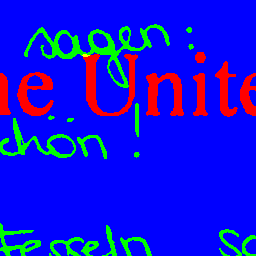 sagen:
he Unite
chön!
Fesseln so